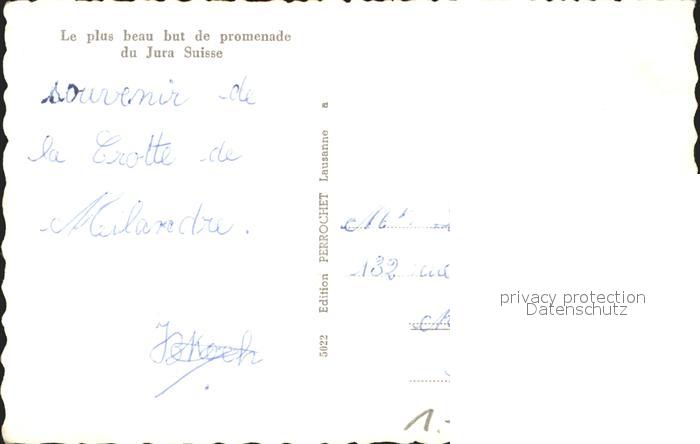 Le plus beau but de promenade
du Jura Suisse
souvenir de
la Grotte de
Milandre.
5022 Edition PERROCHET Lausanne a
132 rue
privacy protection
Datenschutz
1.-